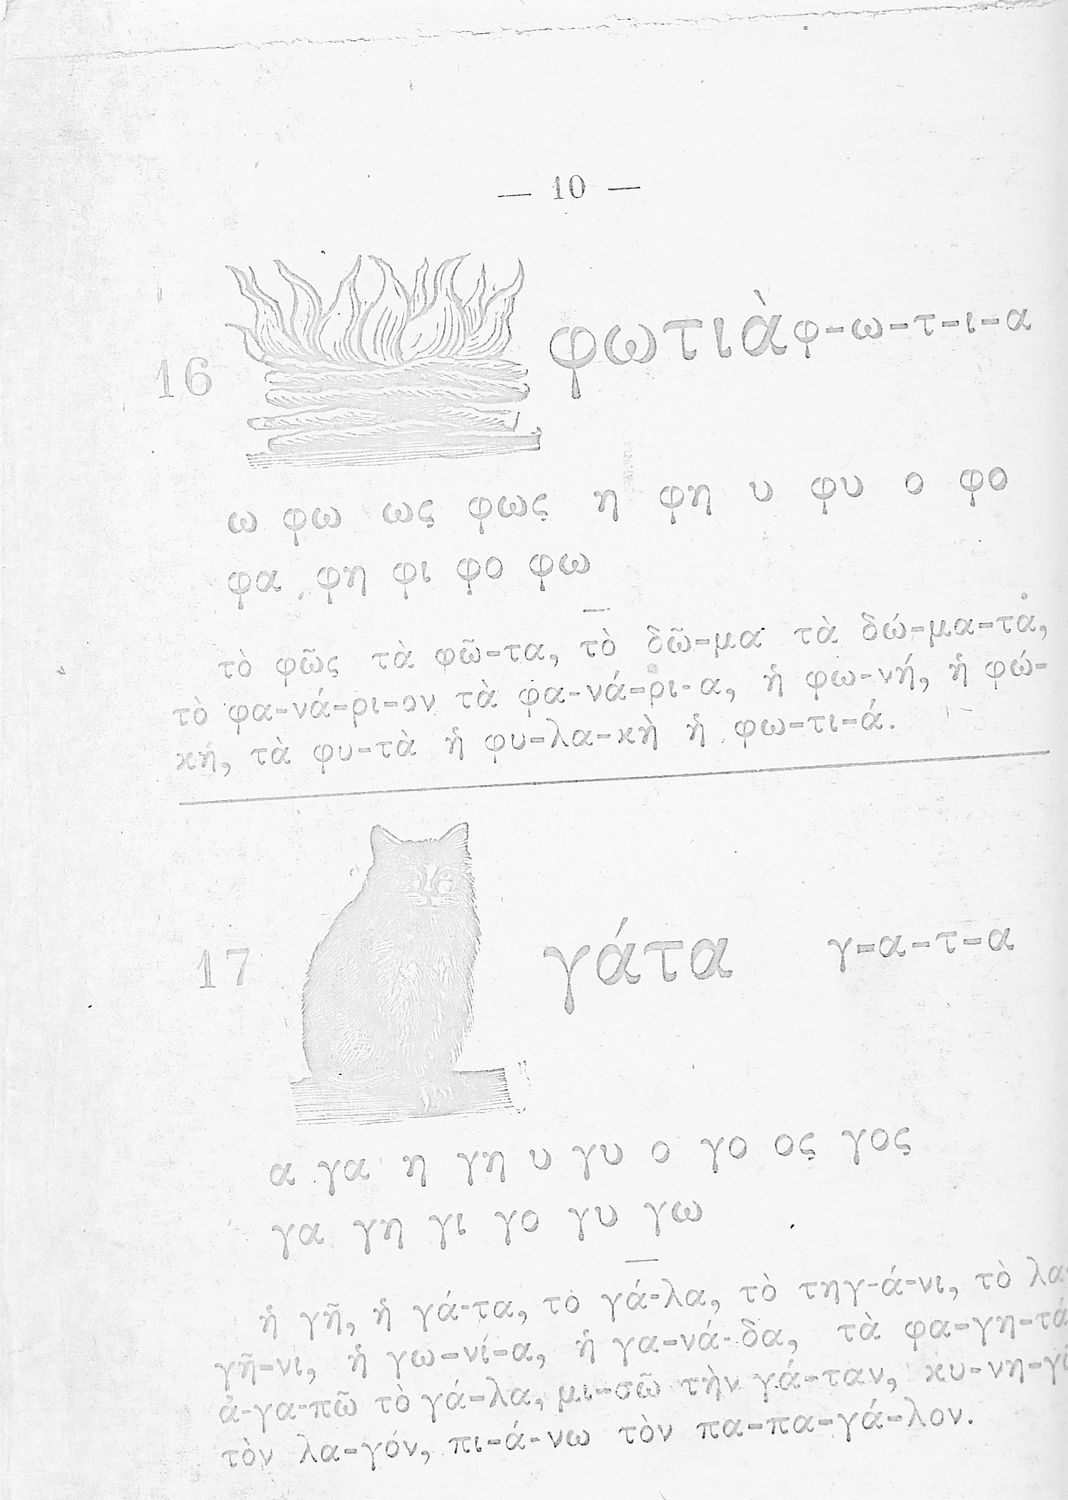 — 10 —
16 φωτιὰ φ-ω-τ-ι-α
ω φω ως φως η φη υ φυ ο φο
φα φη φι φο φω
τὸ φῶς τὰ φῶ-τα, τὸ δῶ-μα τὰ δώ-μα-τα,
τὸ φα-νά-ρι-ον τὰ φα-νά-ρι-α, ἡ φω-νή, ἡ φώ-
κη, τὰ φυ-τὰ ἡ φυ-λα-κὴ ἡ φω-τι-ά.
17 γάτα γ-α-τ-α
α γα η γη υ γυ ο γο ος γος
γα γη γι γο γυ γω
ἡ γῆ, ἡ γά-τα, τὸ γά-λα, τὸ τηγ-ά-νι, τὸ λα-
γῆ-νι, ἡ γω-νί-α, ἡ γα-νά-δα, τὰ φα-γη-τά
ἀ-γα-πῶ τὸ γά-λα, μι-σῶ τὴν γά-ταν, κυ-νη-γῶ
τὸν λα-γόν, πι-ά-νω τὸν πα-πα-γά-λον.